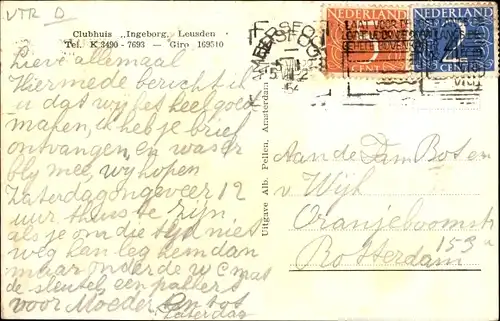 VTR D
Clubhuis „Ingeborg„ Leusden
Tel. K 3490 - 7693 — Giro 169510
Lieve allemaal
Hiermede bericht ik
u dat wij het heel goed
maken, ik heb je brief
ontvangen en was er
blij mee, wij hopen
Zaterdag ongeveer 12
uur thuis te zijn
als je om die tijd niet
weg kan leg hem dan
maar onder de w c mat
de sleutel een
voor Moeder en tot
Zaterdag
Uitgave Alb. Fellen, Amersfoort
AMERSFOORT
NEDERLAND
5
CENT
NEDERLAND
2
CENT
Aan de Fam Bot en
v. Wijk
Oranjeboomstr
153a
Rotterdam